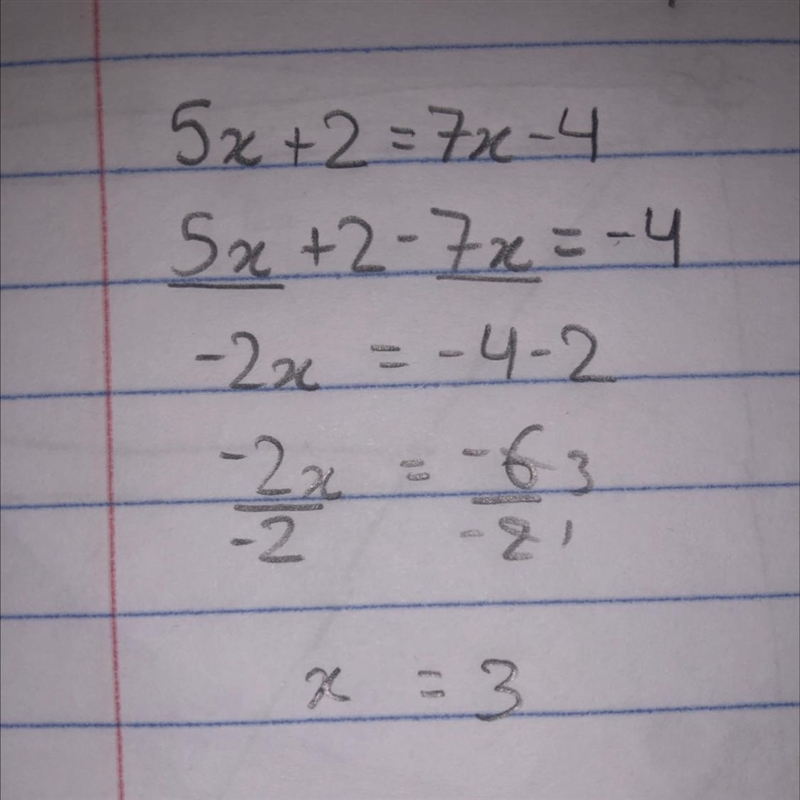 5x+2=7x-4
5x+2-7x=-4
-2x = -4-2
-2x = -6 3
-2 -2 1
x = 3